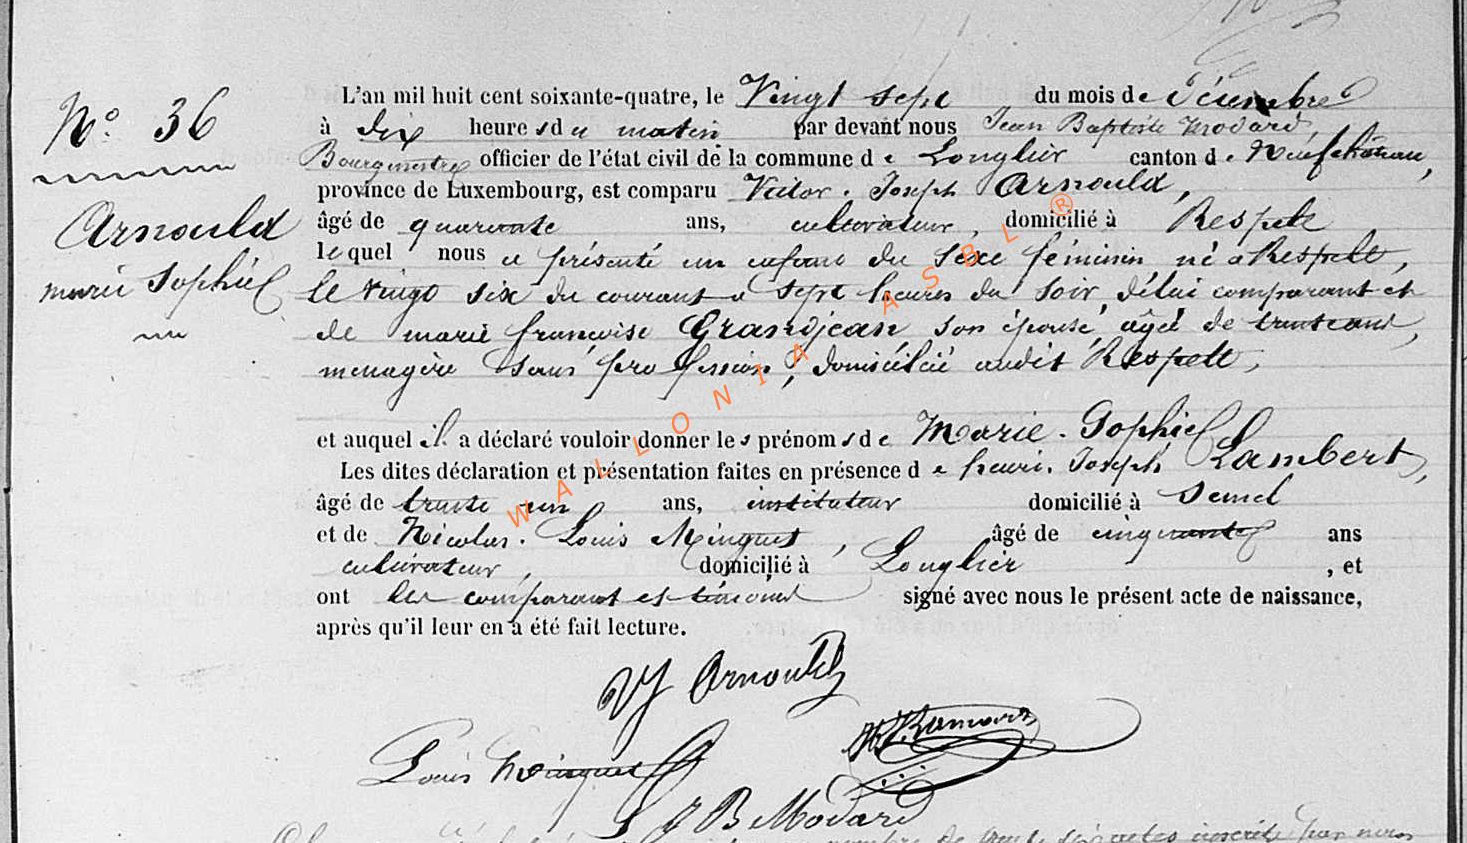 N° 36
Arnould
marie Sophie
L'an mil huit cent soixante-quatre, le Vingt sept du mois de Décembre
à dix heures du matin par devant nous Jean Baptiste Modard,
Bourgmestre officier de l'état civil de la commune de Longlier canton de Neufchâteau,
province de Luxembourg, est comparu Victor. Joseph Arnould,
âgé de quarante ans, cultivateur, domicilié à Respelt
lequel nous a présenté un enfant du sexe féminin né à Respelt,
le vingt six du courant à sept heures du soir, délui comparant et
de marie françoise Grandjean son épouse, âgée de trente ans,
menagère sans profession, domiciliée audit Respelt,
et auquel il a déclaré vouloir donner les prénoms de Marie. Sophie
Les dites déclaration et présentation faites en présence de henri. Joseph Lambert,
âgé de trente un ans, instituteur domicilié à Semel
et de Nicolas. Louis Minguet, âgé de cinquante ans
cultivateur, domicilié à Longlier, et
ont les comparant et témoins signé avec nous le présent acte de naissance,
après qu'il leur en a été fait lecture.
VJ Arnould
Louis Minguet
JB Modard
WALLONIA ASBL ®